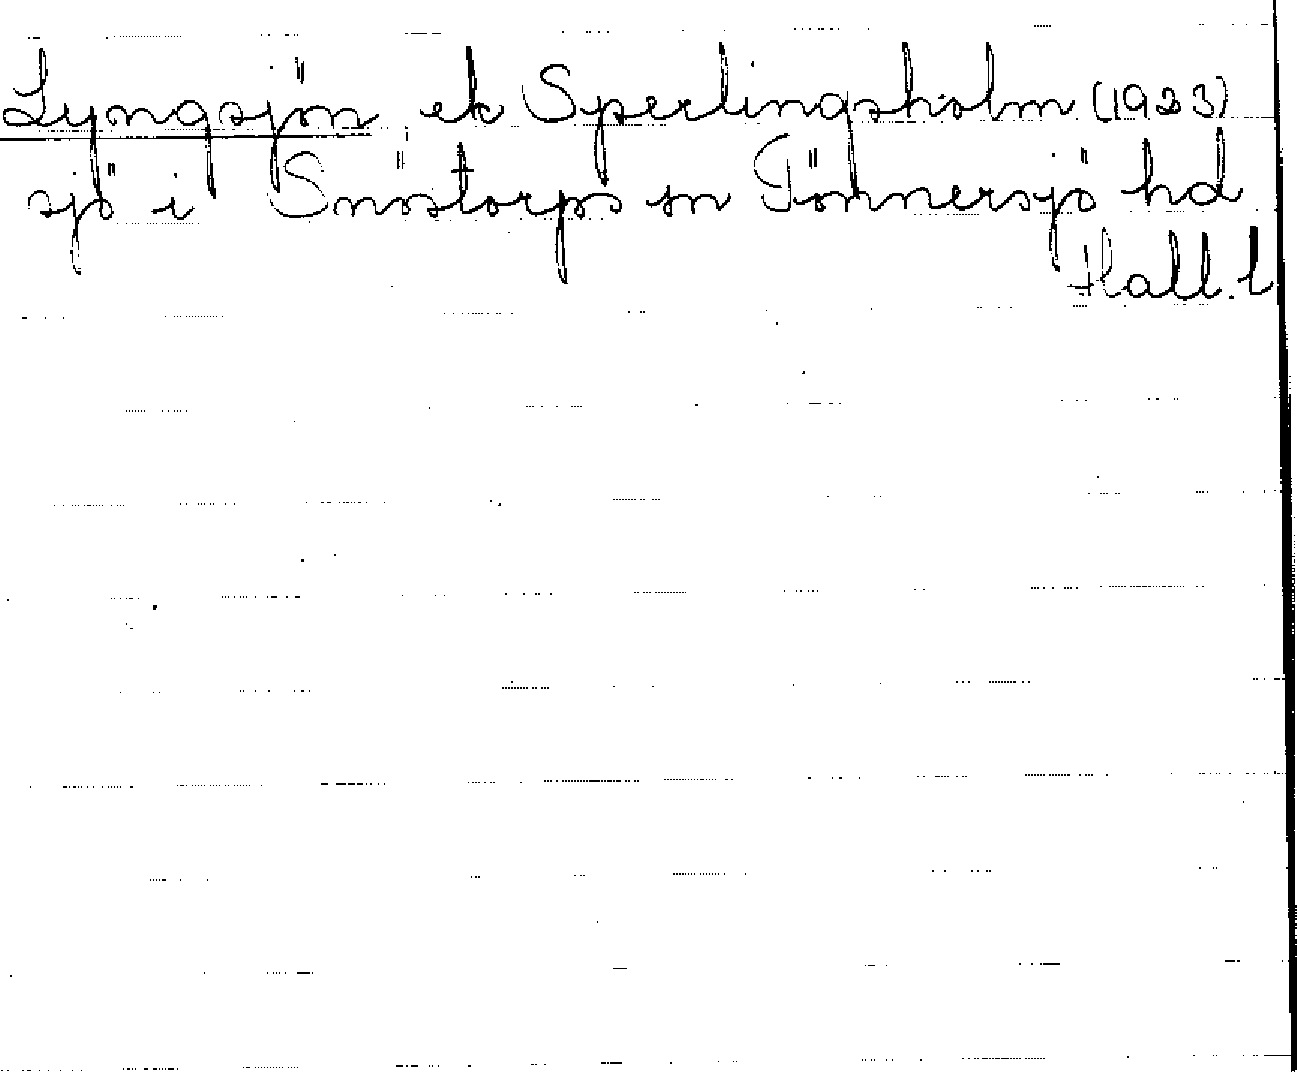 Lyngsjön ek Sperlingsholm (1923)
sjö i Snöstorps sn Tönnersjö hd
Hall. l